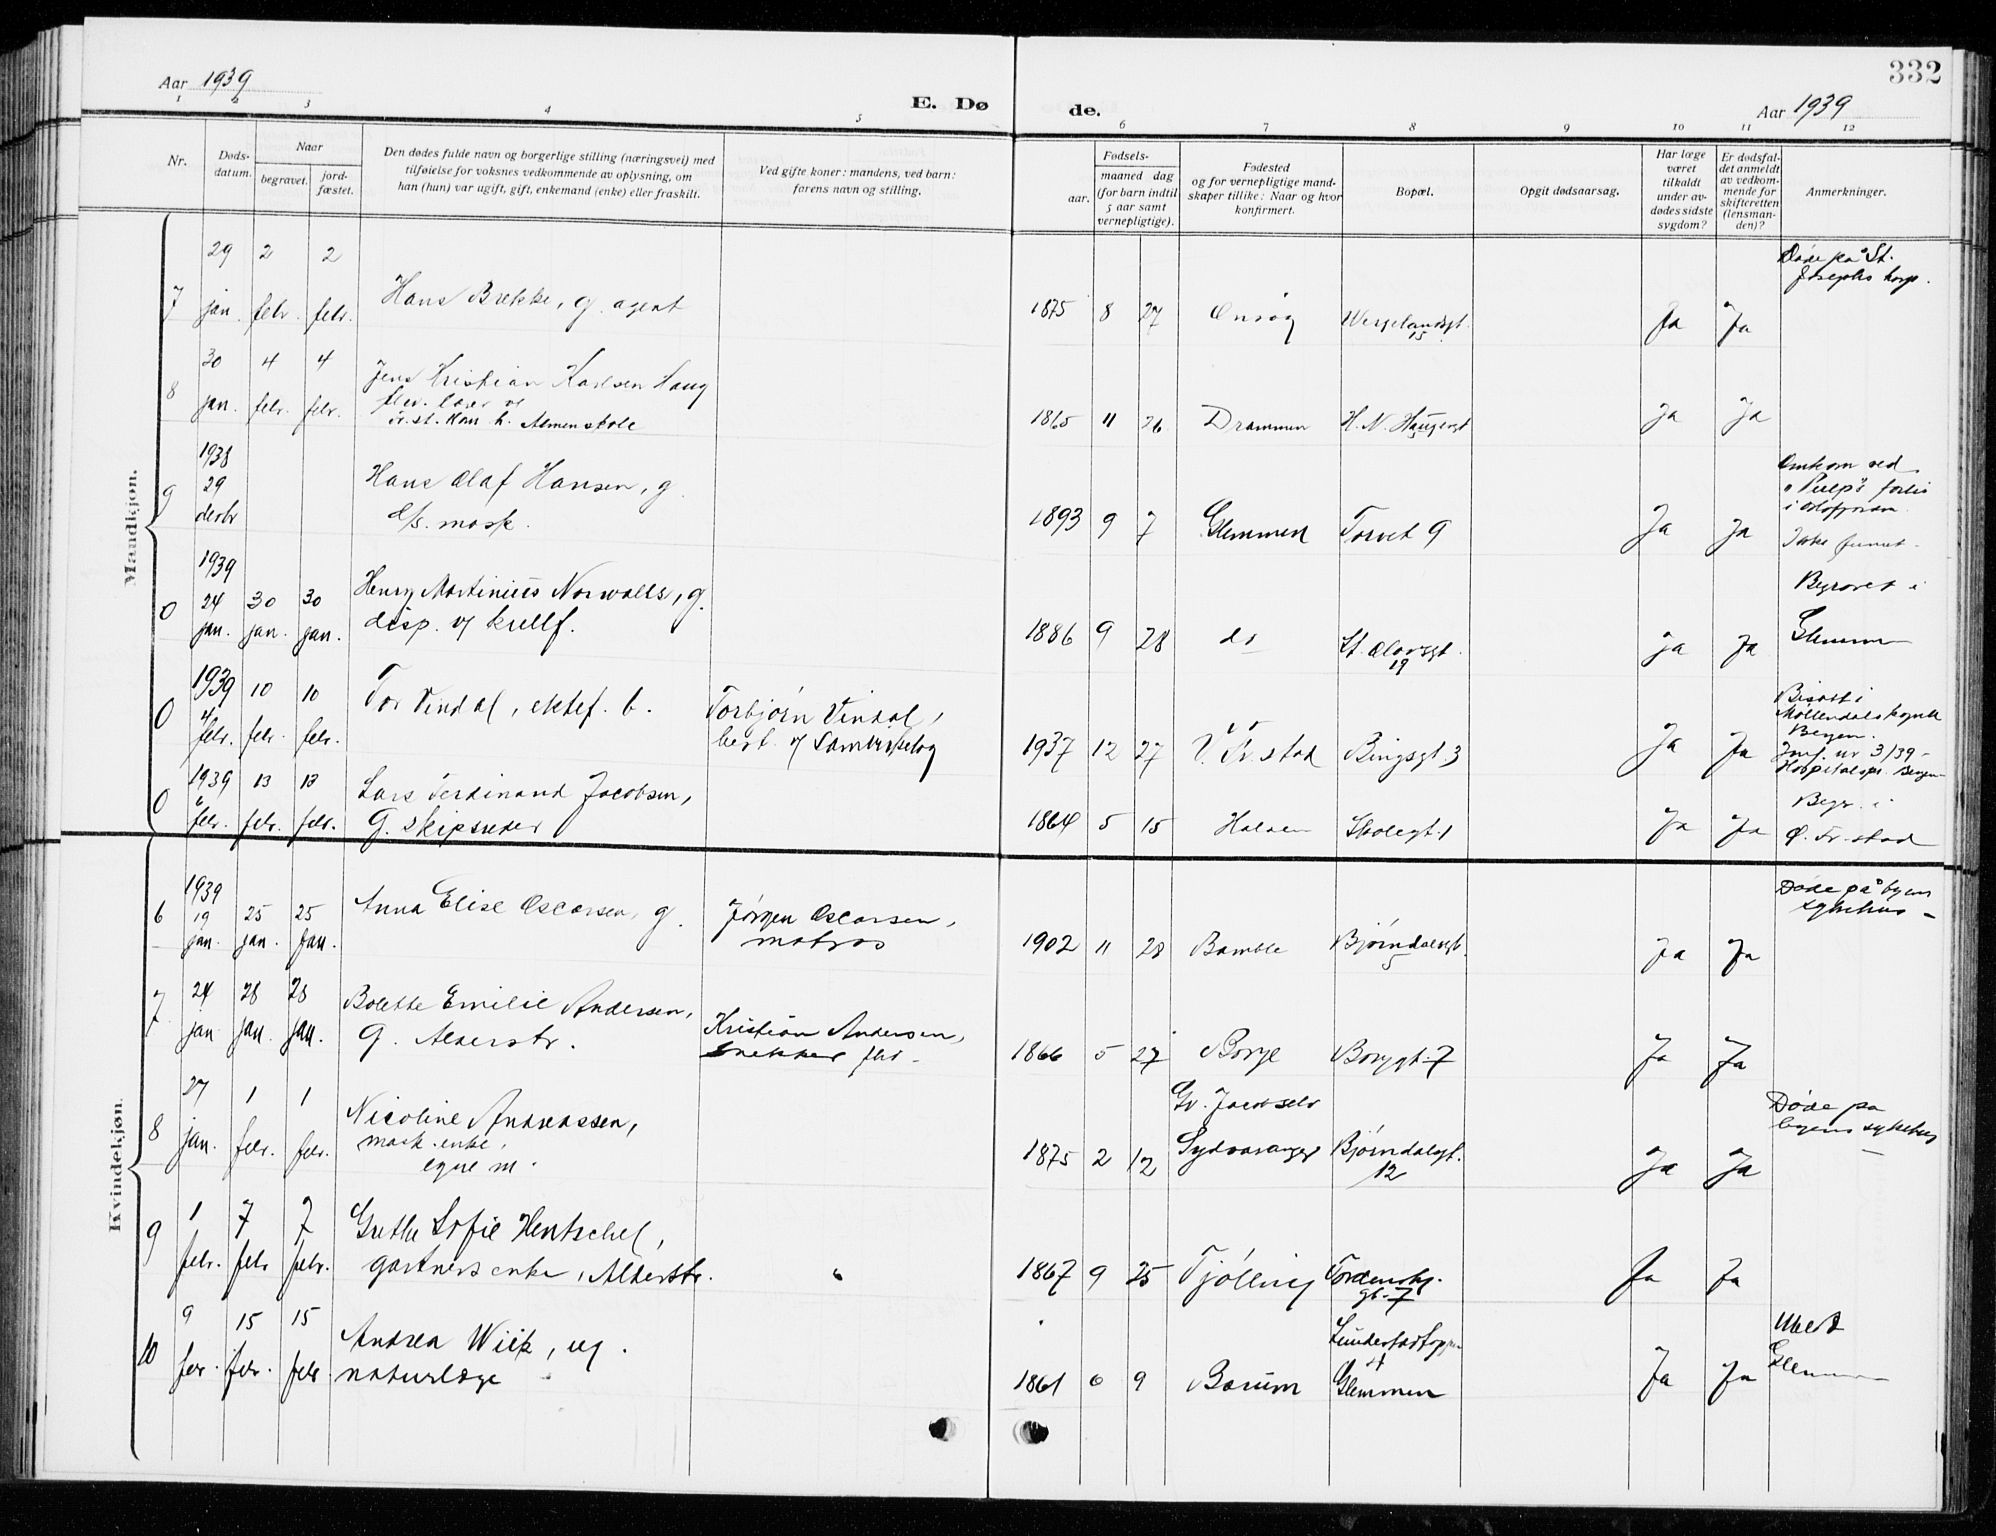 332
Aar 1939
E. Dø
de.
Aar 1939
1 2 3 4 5
6 7 8 9 10 11 12
Nr.
Døds-
datum.
Naar
begravet.
jord-
fæstet.
Den dødes fulde navn og borgerlige stilling (næringsvei) med
tilføielse for voksnes vedkommende av oplysning, om
han (hun) var ugift, gift, enkemand (enke) eller fraskilt.
Ved gifte koner: mandens, ved barn:
farens navn og stilling.
Fødsels-
aar.
maaned dag
(for barn indtil
5 aar samt
vernepligtige).
Fødested
og for vernepligtige mand-
skaper tillike: Naar og hvor
konfirmert.
Bopæl.
Opgit dødsaarsag.
Har læge
været
tilkaldt
under av-
dødes sidste
sygdom?
Er dødsfal-
det anmeldt
av vedkom-
mende for
skifteretten
(lensman-
den)?
Anmerkninger.
Mandkjøn.
7
29 jan. 2 febr. 2 febr.
Hans Brekke, g. agent
1875 8 27 Onsøy
Wergelandsgt. 15
Ja Ja
Døde på St.
Josephs hosp.
8
30 jan. 4 febr. 4 febr.
Jens Kristian Karlsen Haug
v. St. Hans h. Almenskole
1865 11 26 Drammen
H. N. Haugesgt
Ja Ja
9
1938
29
desbr
Hans Olaf Hansen, g.
d/s. mask.
1893 9 7 Glemmen Torvet 9
Ja Ja
Omkom ved
forlis
i Oslofjorden.
Ikke funnet.
0
1939
24 jan. 30 jan. 30 jan.
Henry Martinius Norwalls, g.
disp. v/ kullf.
1886 9 28 do
St. Olavsgt. 19
Ja Ja
Begravet i
Glemmen
0
1939
4 febr. 10 febr. 10 febr.
Tor Vindal, ektef. b.
Torbjørn Vindal,
best. v/ Samvirkelag
1937 12 27 V. Fr.stad Bingsgt 3
Ja Ja
Bisatt i
Møllendals kapell
Bergen.
Jmf. nr 3/39
Hospitalspr. Bergen
0
1939
6 febr. 13 febr. 13 febr.
Lars Ferdinand Jacobsen,
g. skipsreder
1864 5 15 Halden Skolegt. 1
Ja Ja
Begr. i
Ø. Fr.stad
Kvindekjøn.
6
1939
19 jan. 25 jan. 25 jan.
Anna Elise Oscarsen, g.
Jørgen Oscarsen,
matros
1902 11 28 Bamble
Bjørndalsgt. 5
Ja Ja
Døde på byens
sykehus
7
24 jan 28 jan. 28 jan.
Bolette Emilie Andersen,
g. Alderstr.
Kristian Andersen,
snekker
1866 5 27 Borge Borggt. 7
Ja Ja
8
27 jan. 1 febr. 1 febr.
Nicoline Andreassen,
mask. enke,
egne m.
Gr. Jacobselv
1875 2 12 Sydvaranger
Bjørndalsgt.
12
Ja Ja
Døde på
byens sykehus
9
1 febr. 7 febr 7 febr.
Grethe Sofie Hentschel,
gartners enke, Alderstr.
1867 9 25 Tjølling Tordenskj.
gt. 7
Ja Ja
10
9 febr. 15 febr. 15 febr
Andrea Wiik, ug.
naturlæge
1861 6 9 Bærum
Glemmen
Ja Ja
Glemmen